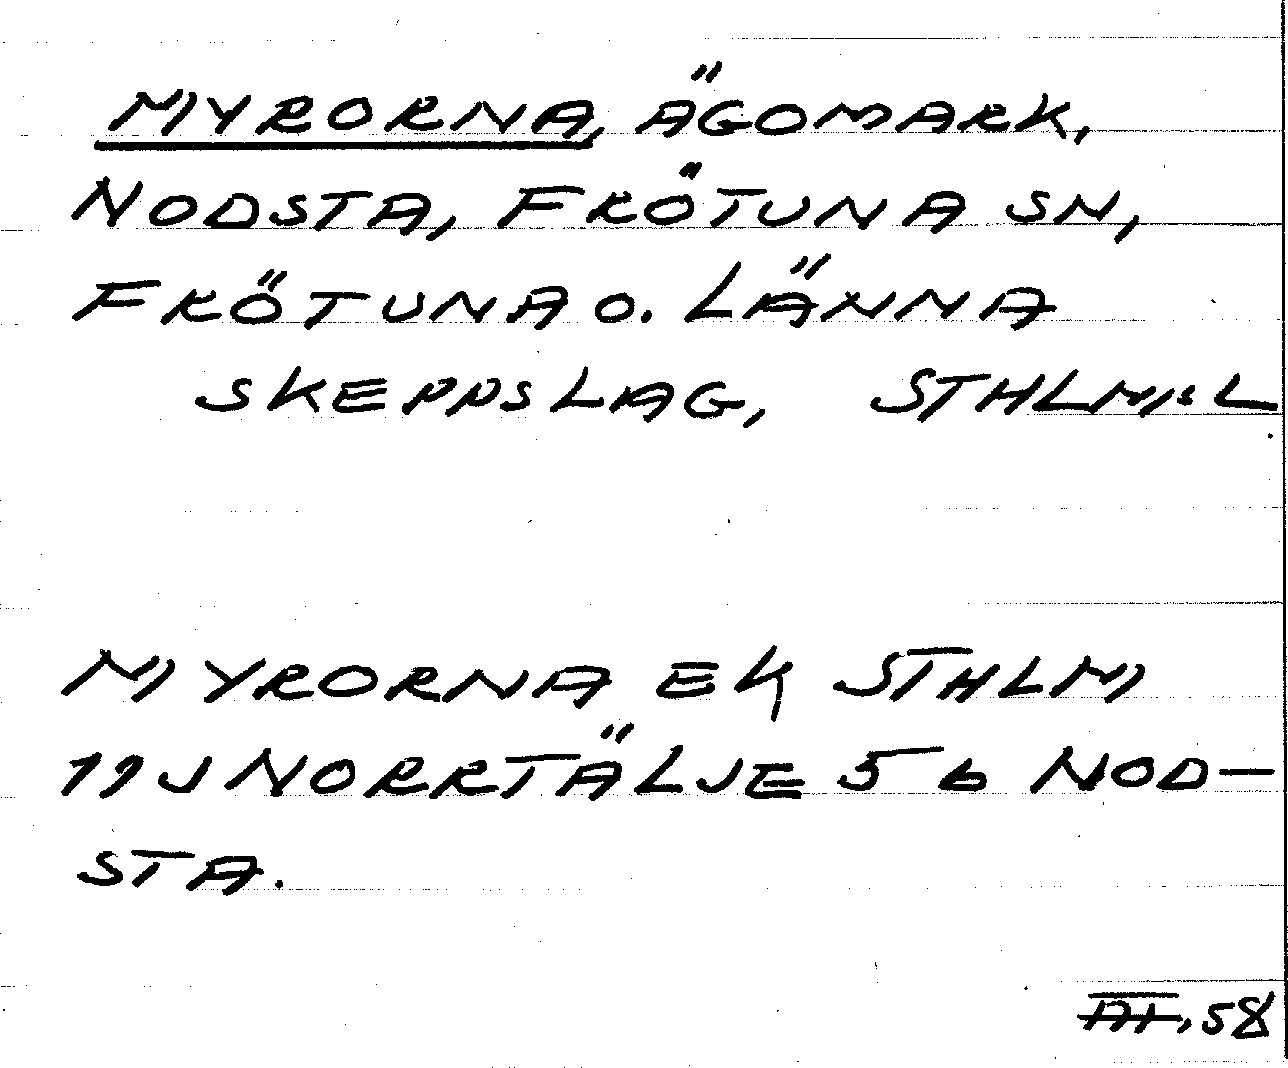 MYRORNA, ÄGOMARK,
NODSTA, FRÖTUNA SN,
FRÖTUNA O. LÄNNA
SKEPPSLAG, STHLM:S L
MYRORNA EK STHLM
11J NORRTÄLJE 5 b NOD-
STA.
58